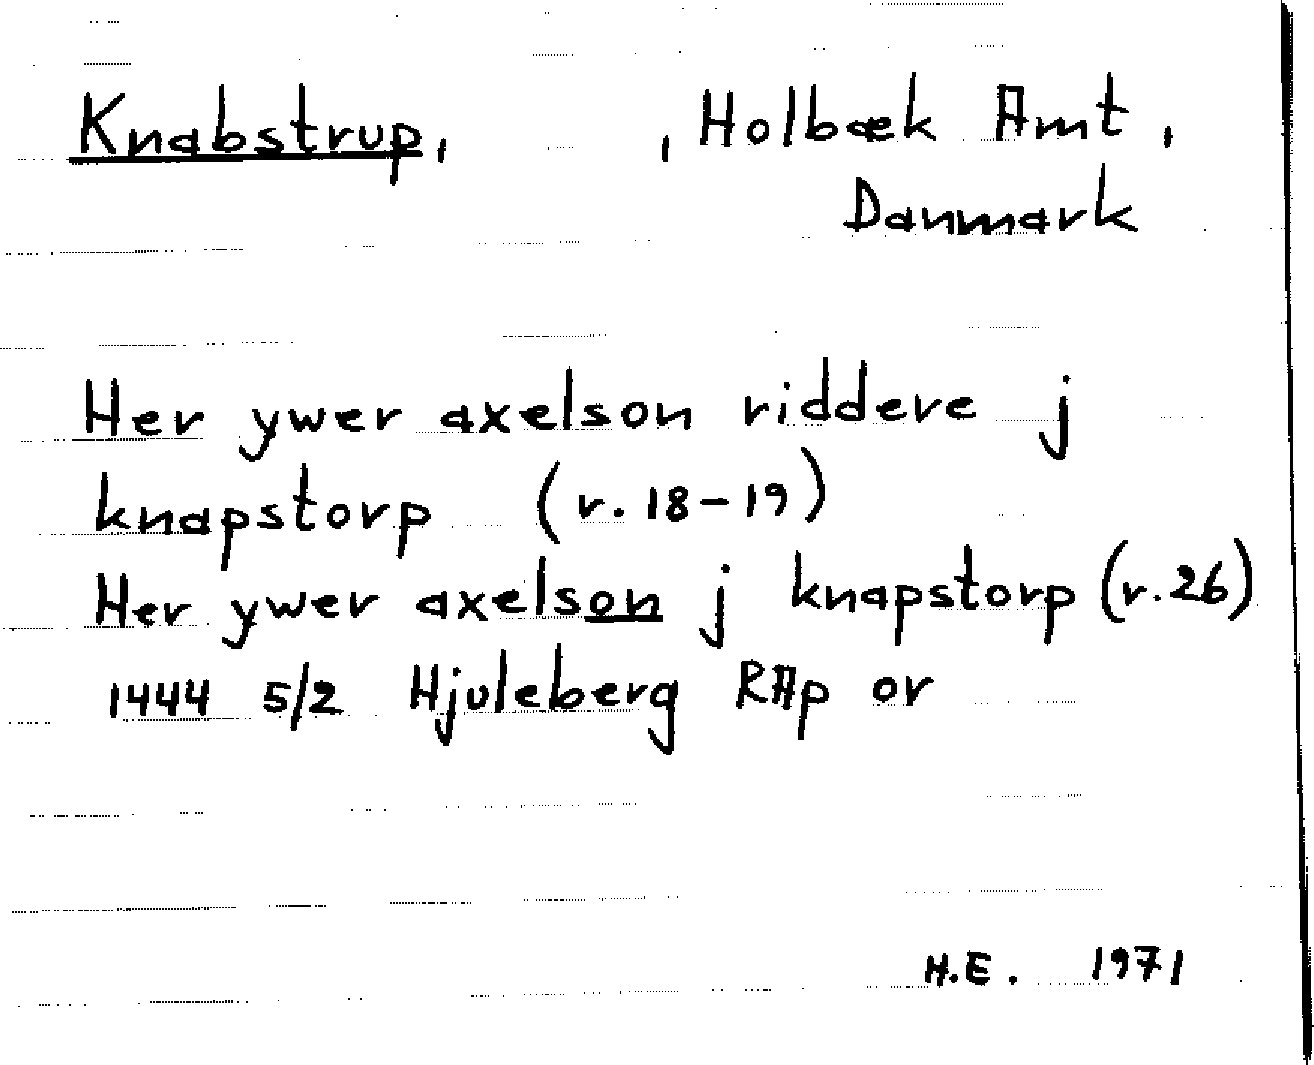 Knabstrup, , Holbæk Amt,
Danmark
Her ywer axelson riddere j
knapstorp (r. 18-19)
Her ywer axelson j knapstorp (r.26)
1444 5/2 Hjuleberg RAp or
H.E. 1971